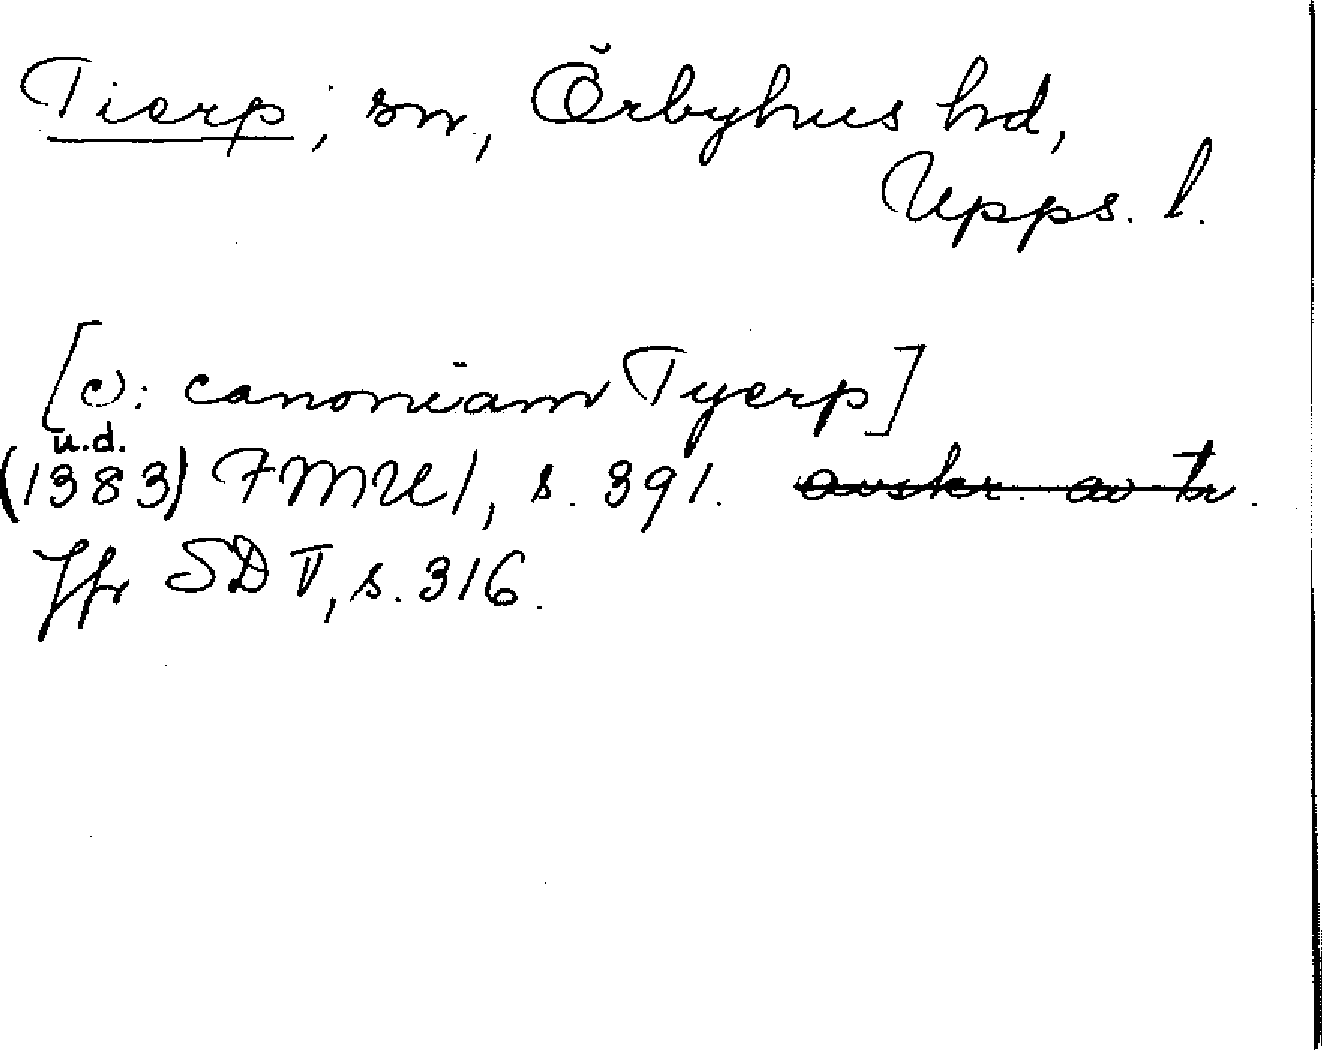 Tierp, sn, Örbyhus hd,
Upps. l.
[c: canoniam Tyerp]
u.d.
(1383) FMU 1, s. 391. avskr. av tr.
Jfr SD V, s. 316.